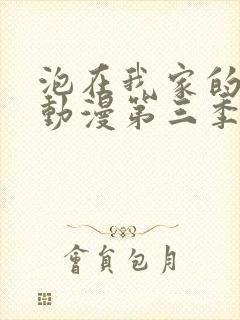 泡在我家的
動漫第三季
會員包月